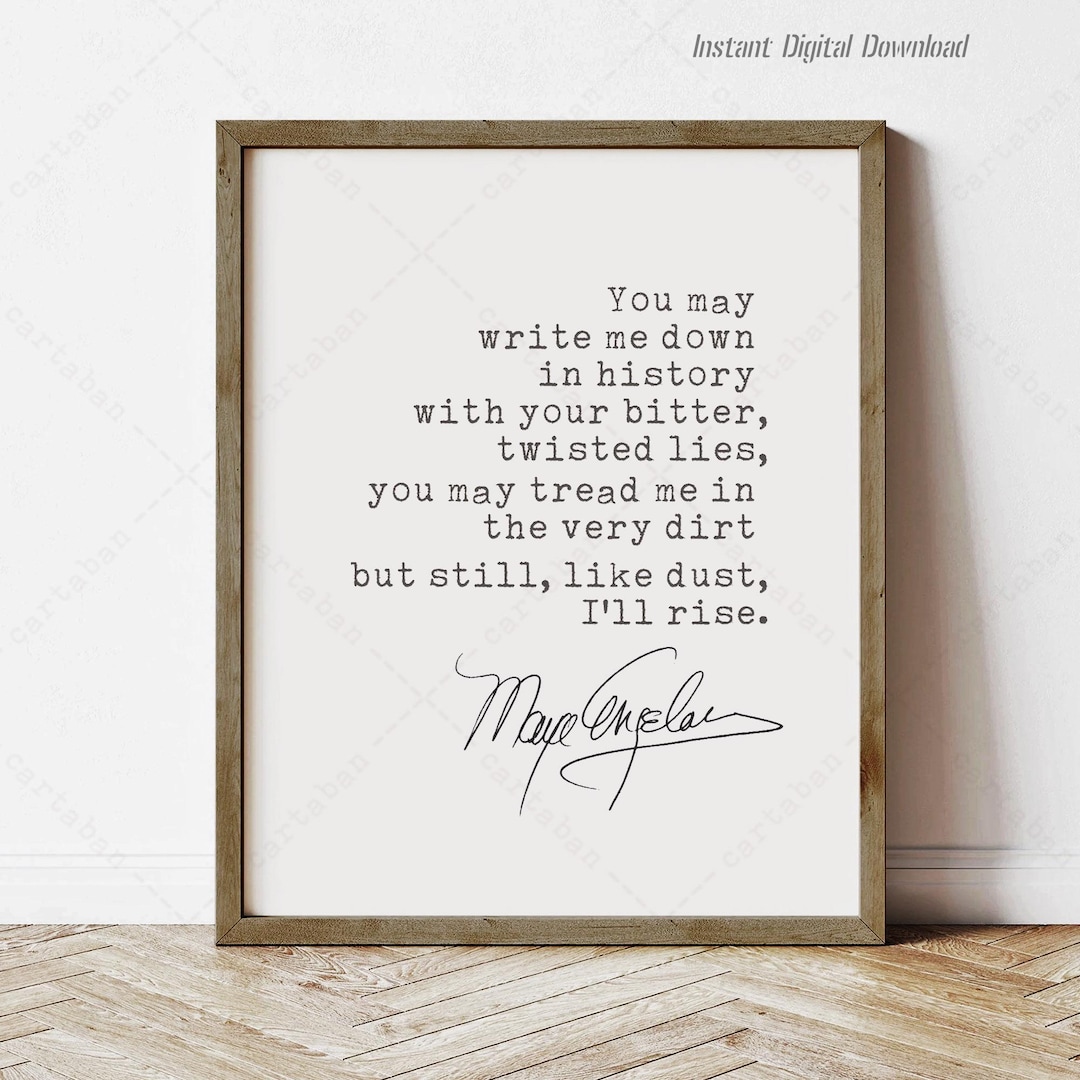 Instant Digital Download
You may
write me down
in history
with your bitter,
twisted lies,
you may tread me in
the very dirt
but still, like dust,
I'll rise.
Maya Angelou
cartaban